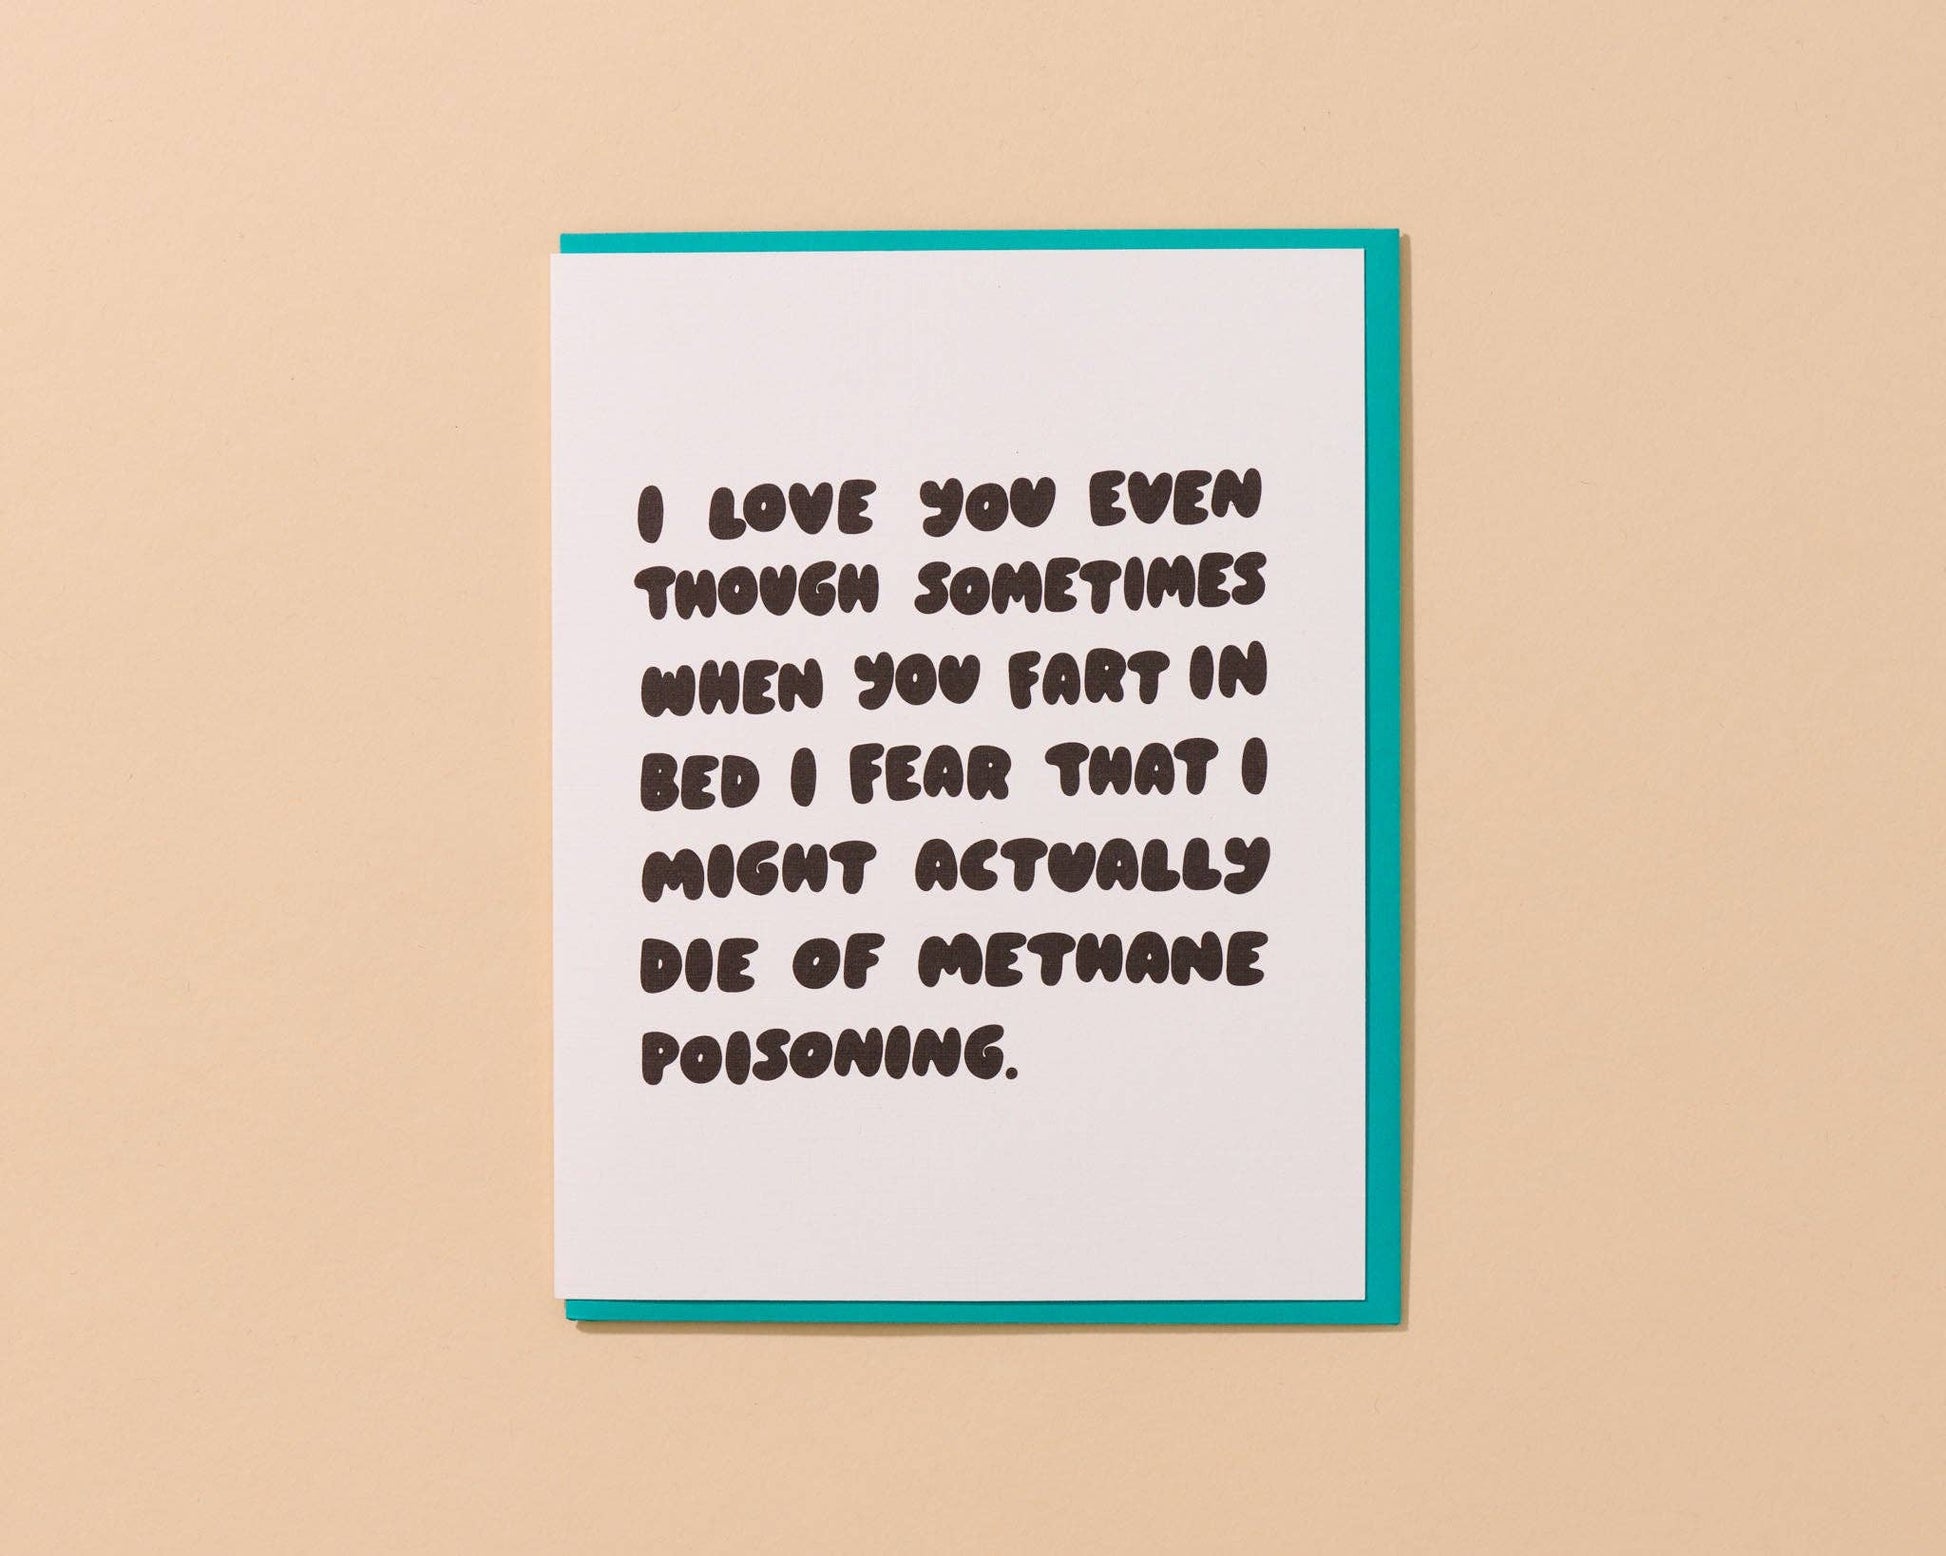 I LOVE YOU EVEN
THOUGH SOMETIMES
WHEN YOU FART IN
BED I FEAR THAT I
MIGHT ACTUALLY
DIE OF METHANE
POISONING.